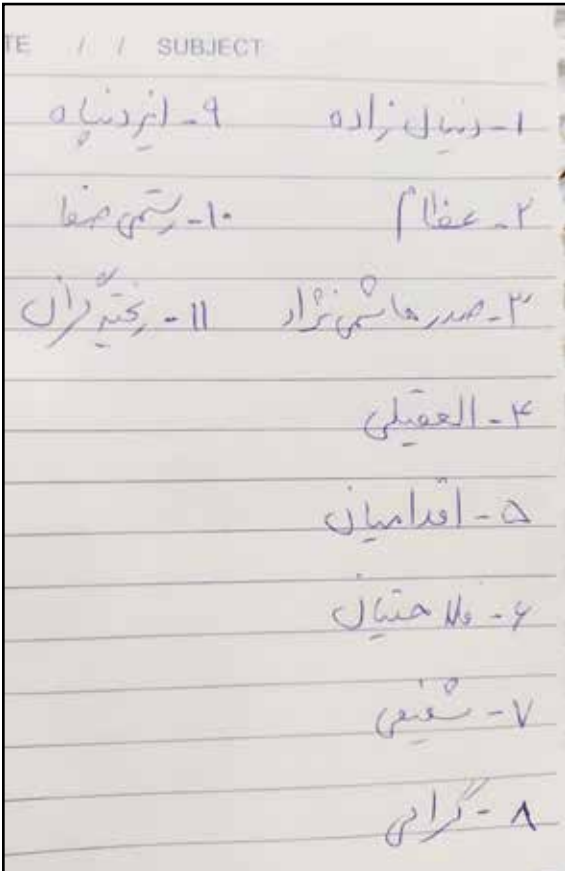 TE / / SUBJECT
۱- دنیال زاده
۲- عظام
۳- صدرهاشمی نژاد
۴- العقیلی
۵- اقدامیان
۶- فلاحتیان
۷- شفیعی
۸- گرامی
۹- ایزدپناه
۱۰- رستمی صفا
۱۱- ریخته گران